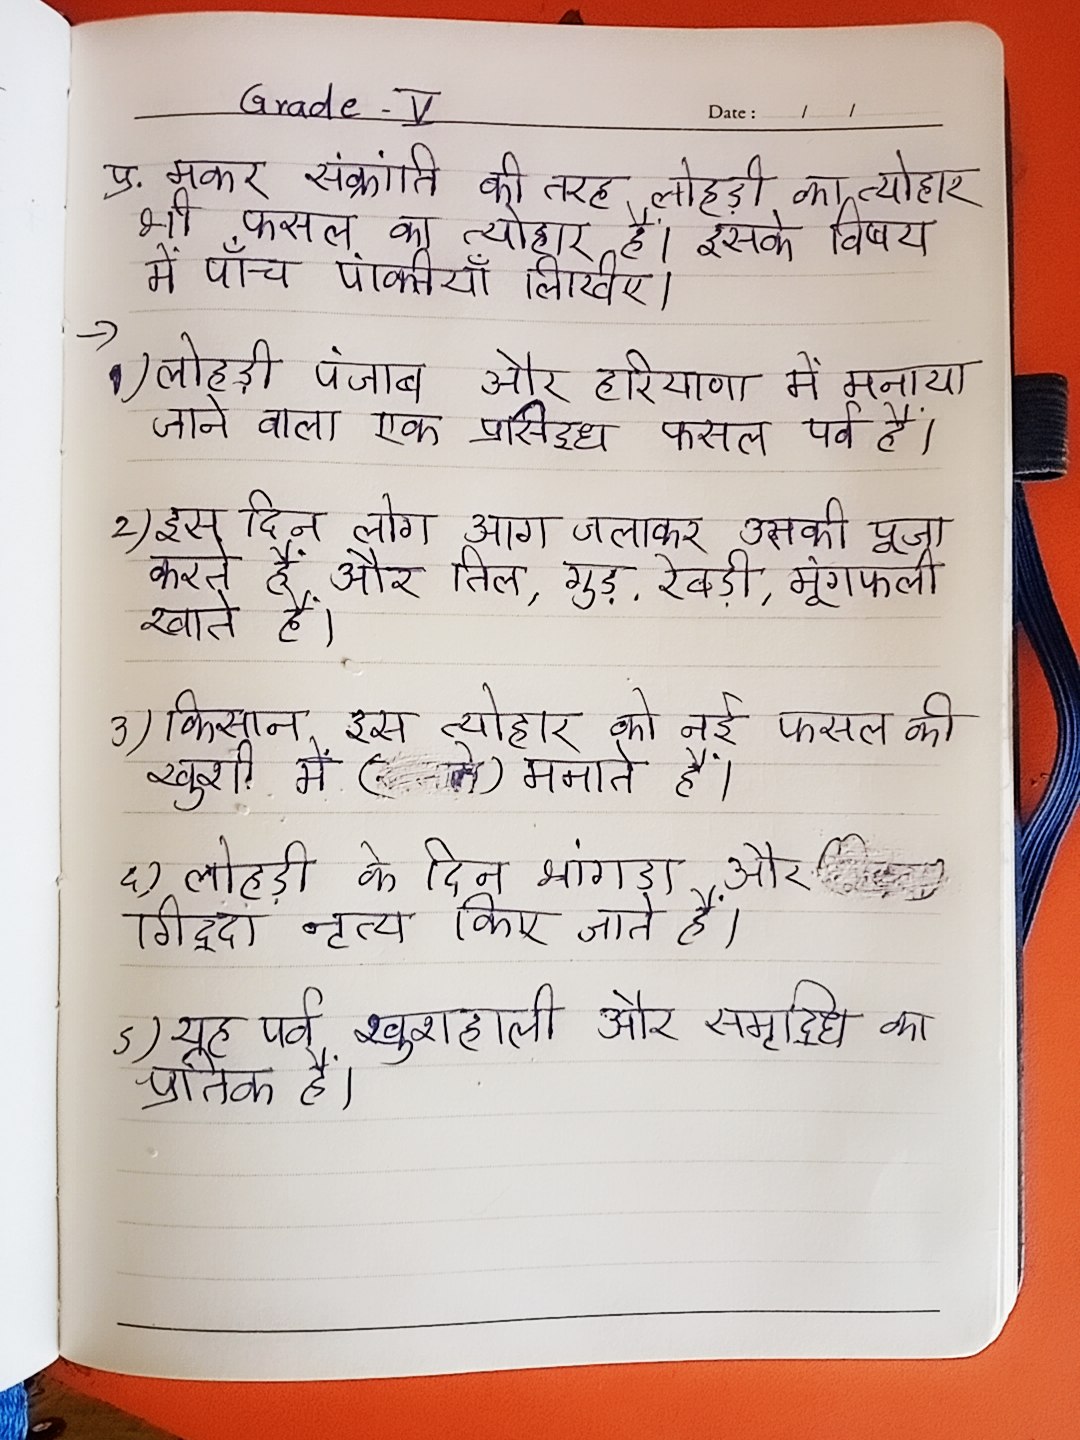 Grade - V
Date : / /
प्र. मकर संक्रांति की तरह लोहड़ी का त्योहार
भी फसल का त्योहार हैं। इसके विषय
में पाँच पंक्तीयाँ लिखीए।
→
1) लोहड़ी पंजाब और हरियाणा में मनाया
जाने वाला एक प्रसिद्ध फसल पर्व हैं।
2) इस दिन लोग आग जलाकर उसकी पूजा
करते हैं और तिल, गुड़, रेवड़ी, मूंगफली
खाते हैं।
3) किसान इस त्योहार को नई फसल की
खुशी में ( ) मनाते हैं।
4) लोहड़ी के दिन भांगड़ा और
गिद्दा नृत्य किए जाते हैं।
5) यह पर्व खुशहाली और समृद्धि का
प्रतिक हैं।